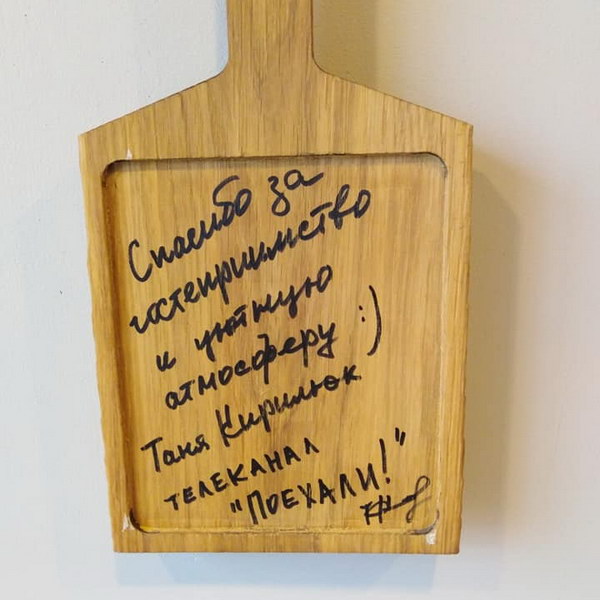 Спасибо за
гостеприимство
и уютную
атмосферу :)
Таня Кирилюк
ТЕЛЕКАНАЛ
"ПОЕХАЛИ!"